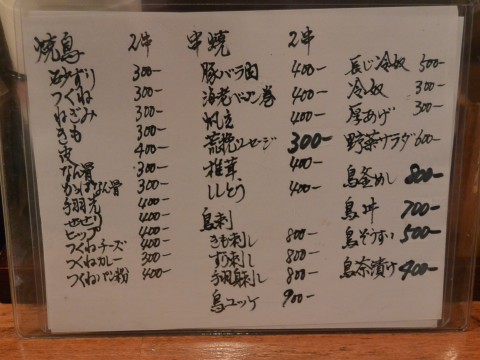 焼鳥 2串
砂ずり 300-
つくね 300-
ねぎみ 300-
きも 300-
皮 400-
なん骨 300-
かっぱなん骨 300-
手羽先 400-
せせり 400-
ヒップ 400-
つくねチーズ 400-
つくねカレー 300-
つくねパン粉 400-
串焼 2串
豚バラ肉 400-
海老ベーコン巻 400-
帆立 400-
荒挽ソーセージ 300-
椎茸 400-
ししとう 400-
鳥刺
きも刺し 800-
ずり刺し 800-
手羽身刺し 800-
鳥ユッケ 900-
冷奴 500-
冷奴 300-
厚あげ 300-
野菜サラダ 600-
鳥釜めし 800-
鳥丼 700-
鳥ぞうすい 500-
鳥茶漬け 400-